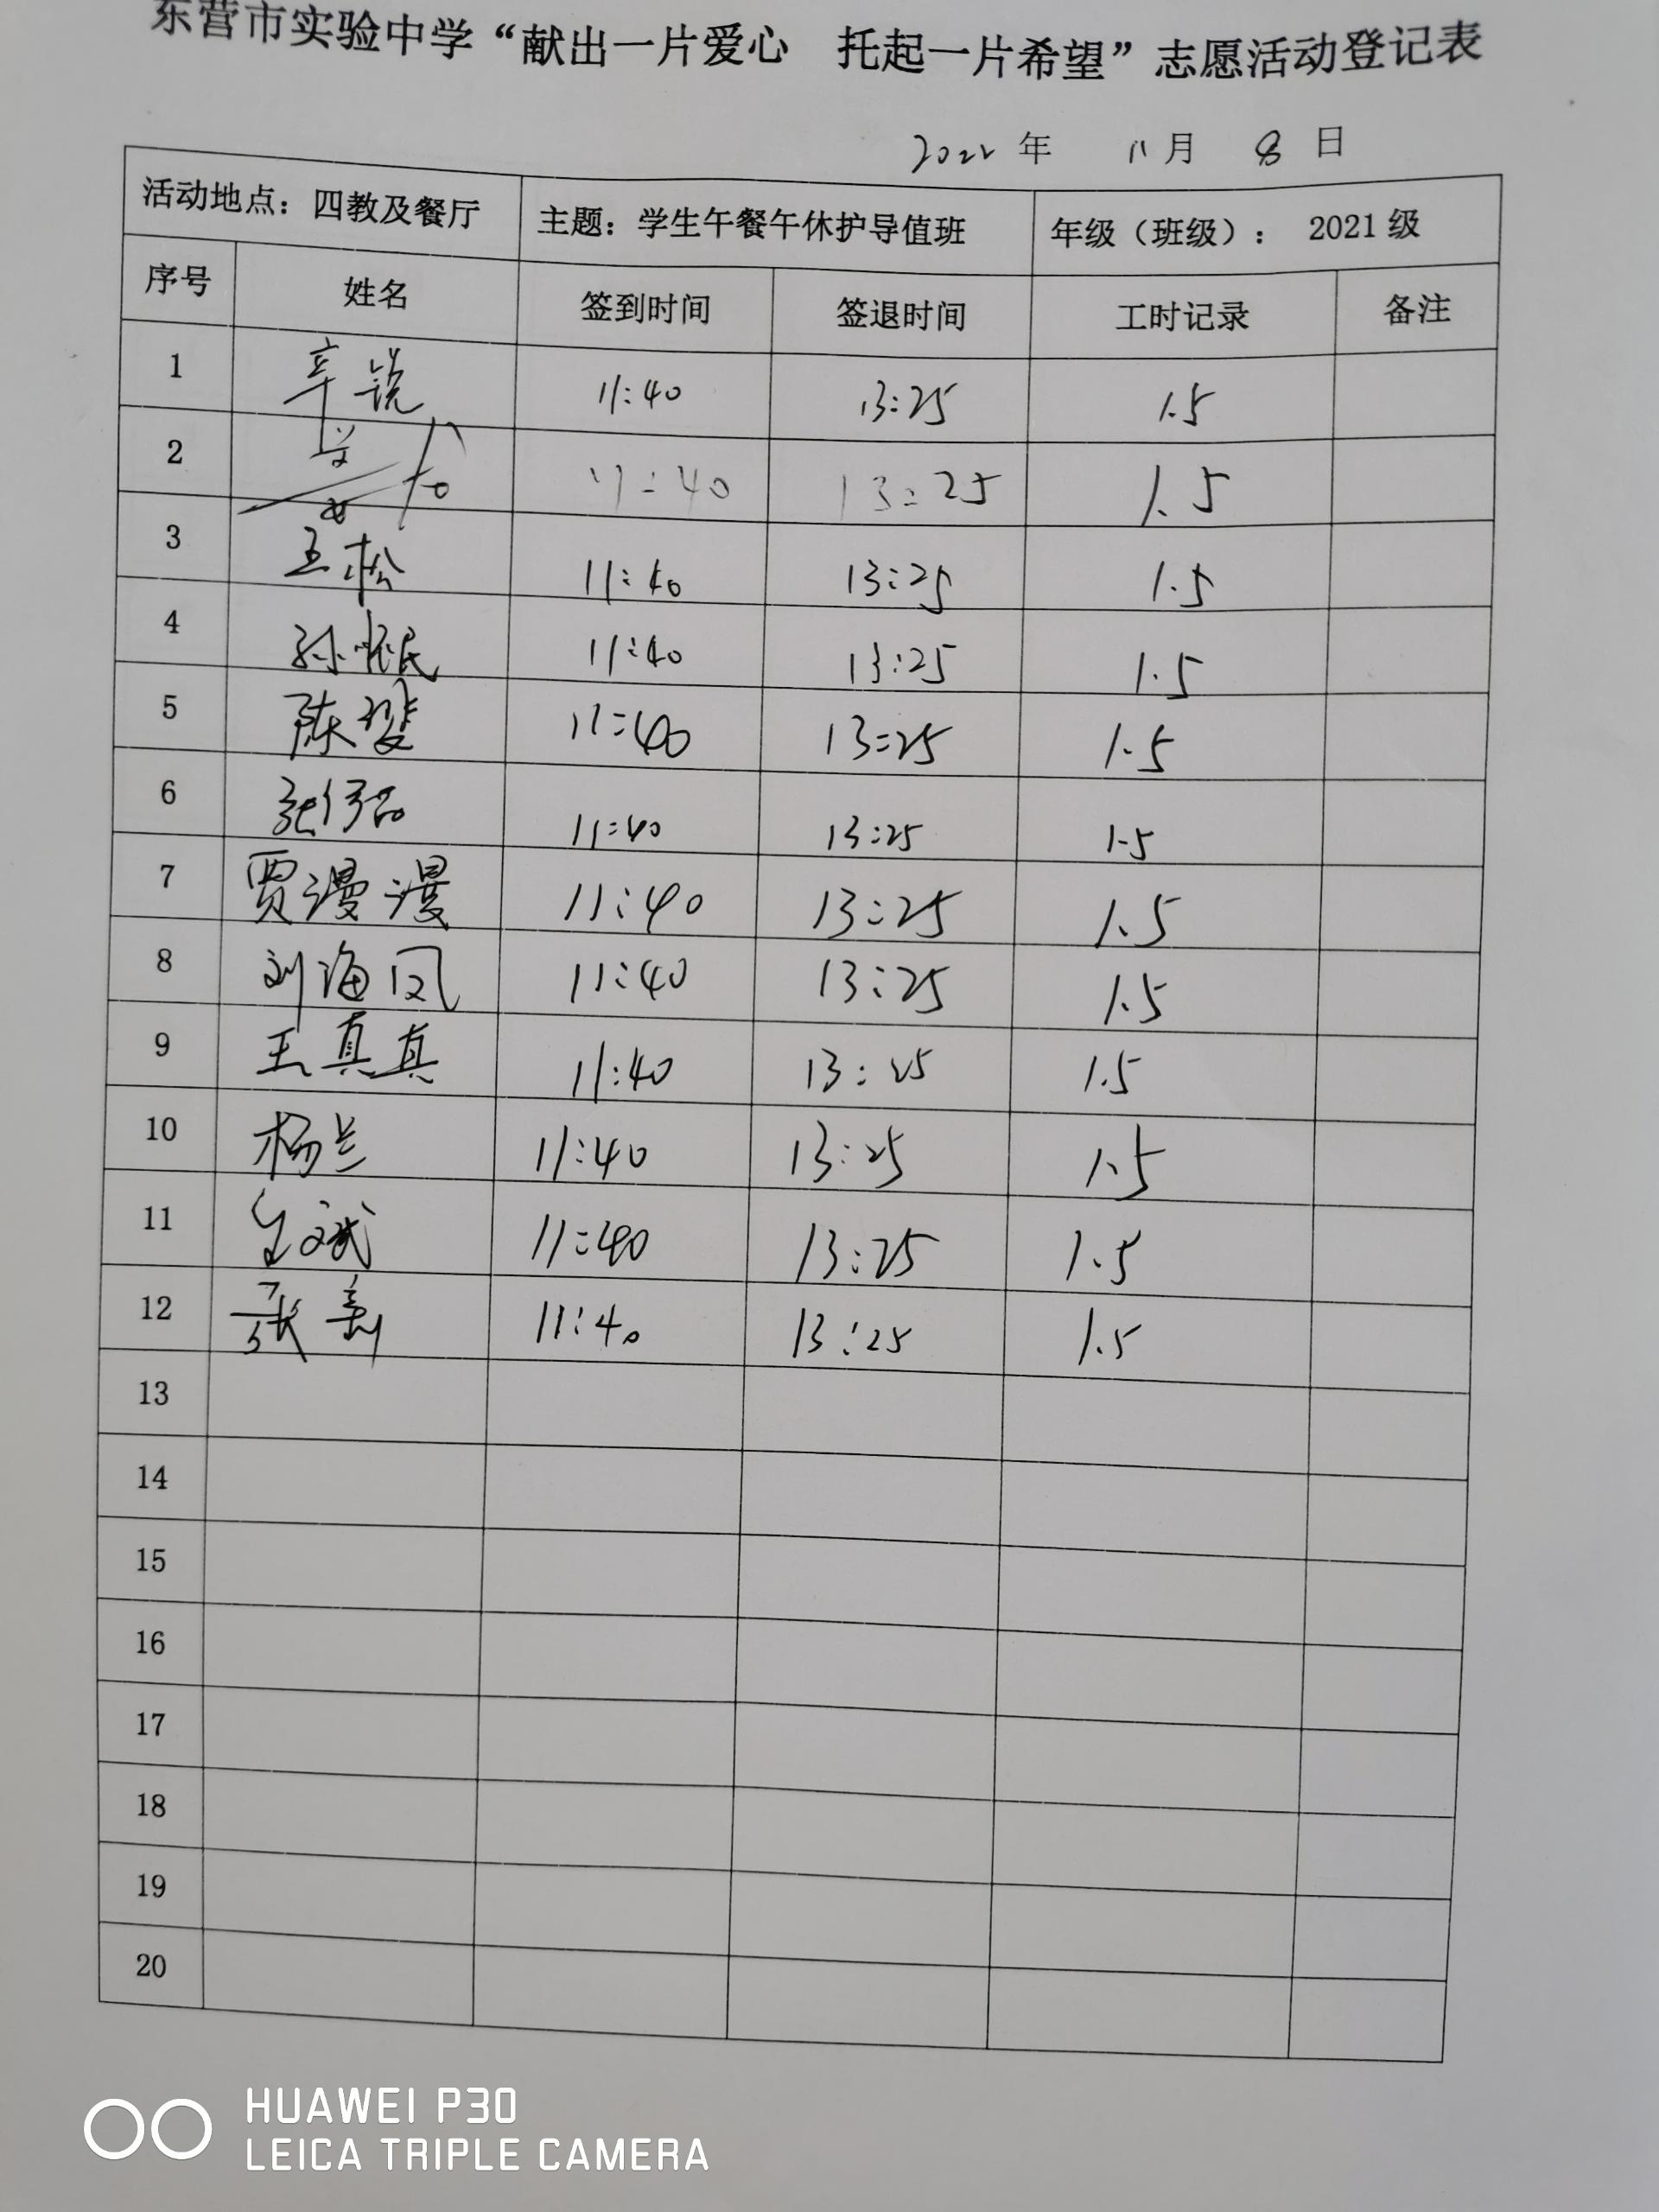 东营市实验中学“献出一片爱心 托起一片希望”志愿活动登记表
2022 年 11 月 8 日
活动地点：四教及餐厅 主题：学生午餐午休护导值班 年级（班级）： 2021 级
序号 姓名 签到时间 签退时间 工时记录 备注
1 辛锐 11:40 13:25 1.5
2 11:40 13:25 1.5
3 王松 11:40 13:25 1.5
4 孙怀民 11:40 13:25 1.5
5 陈斐 11:40 13:25 1.5
6 11:40 13:25 1.5
7 贾漫漫 11:40 13:25 1.5
8 刘海凤 11:40 13:25 1.5
9 王真真 11:40 13:25 1.5
10 杨兰 11:40 13:25 1.5
11 11:40 13:25 1.5
12 张 11:40 13:25 1.5
13
14
15
16
17
18
19
20
HUAWEI P30
LEICA TRIPLE CAMERA